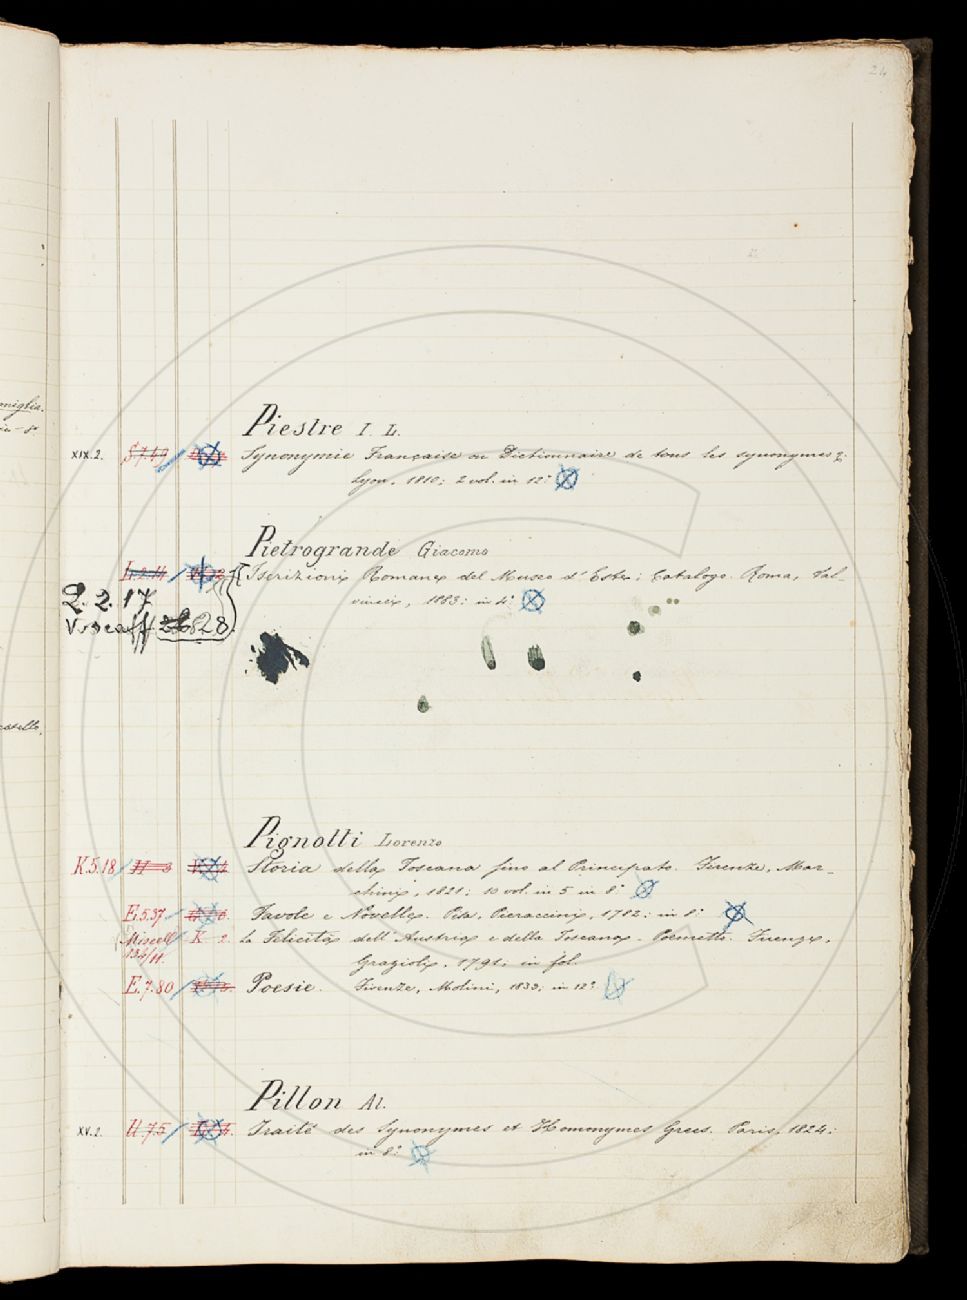 24
Piestre I. L.
XIX.2. Synonymie Française ou Dictionnaire de tous les synonymes &.
Lyon, 1810; 2 vol. in 12.°
Pietrogrande Giacomo
L.2.14 Iscrizioni Romane del Museo d'Este; Catalogo. Roma, Sal-
viucci, 1883; in 4.°
2.2.17
V. scaff 28.
Pignotti Lorenzo
K.5.18 Storia della Toscana fino al Principato. Firenze, Mar-
chini, 1821; 10 vol. in 5 in 8.°
E.5.37. Favole e Novelle. Pisa, Pieraccini, 1782; in 8.°
Miscell K 2. La Felicità dell'Austria e della Toscana. Poemetto. Firenze,
134/11. Grazioli, 1791; in fol.
E.7.80 Poesie. Firenze, Molini, 1833; in 12.°
Pillon Al.
XV.2. U.7.5 Traité des Synonymes et Homonymes Grecs. Paris, 1824;
in 8.°